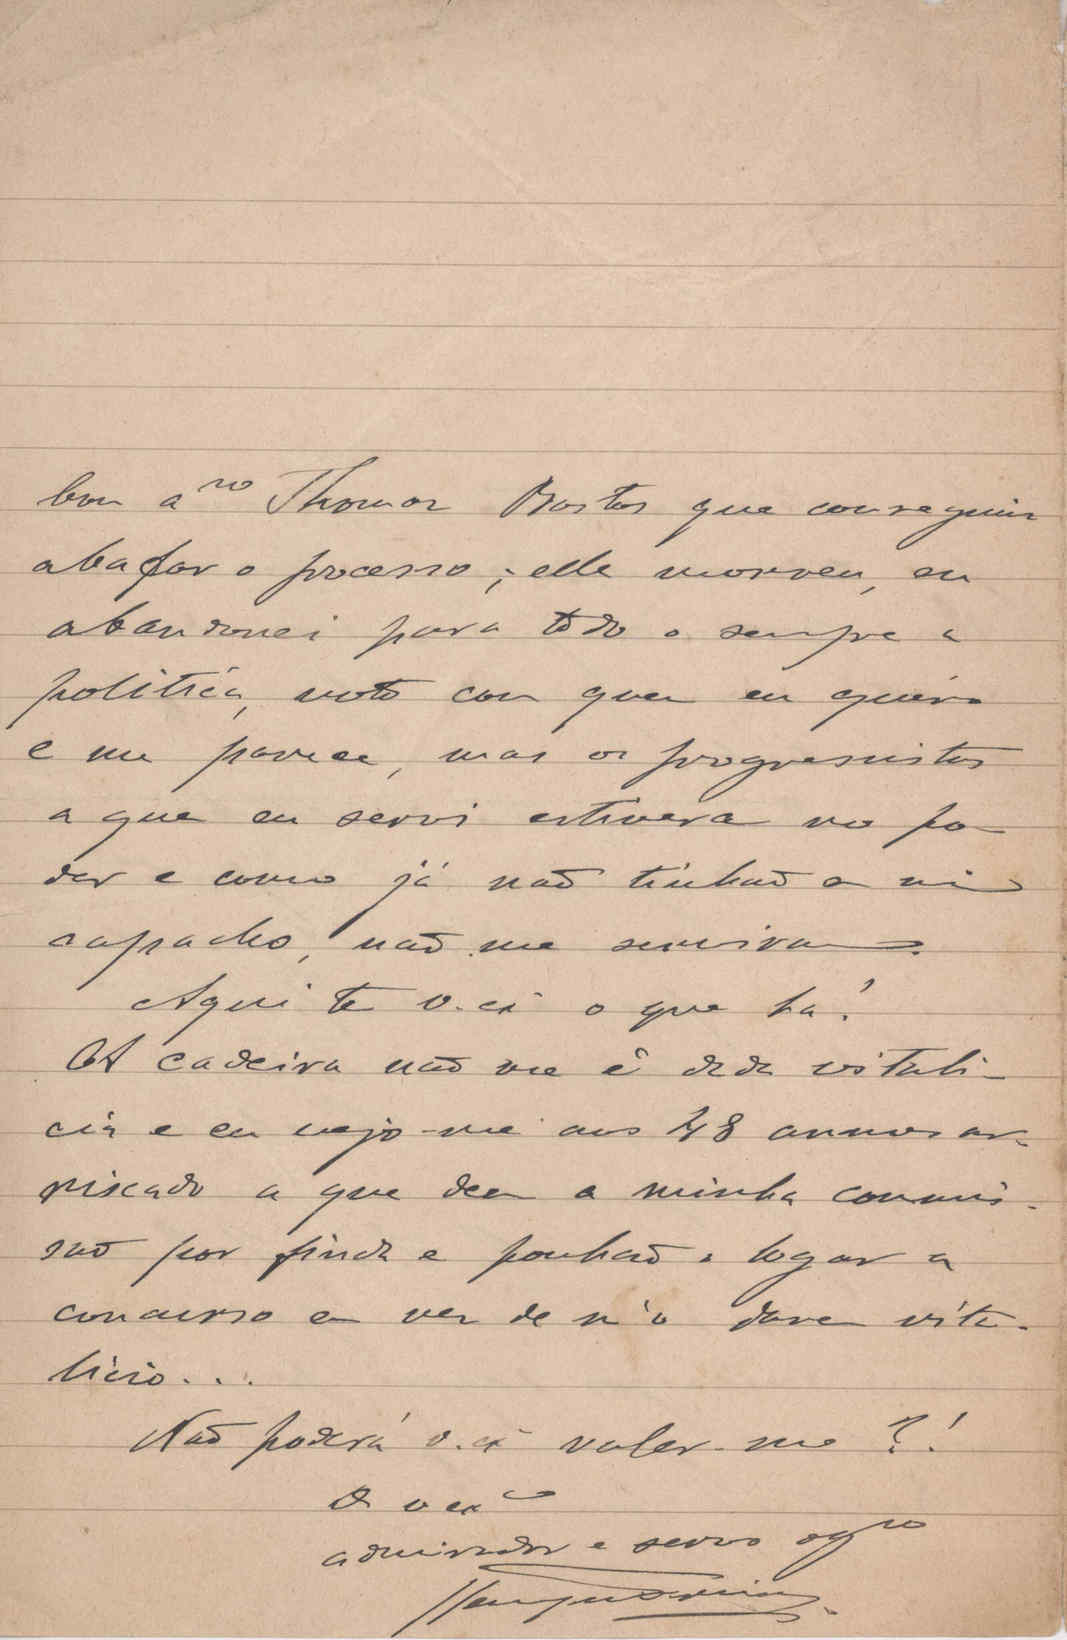 bom a.ro Thomaz Bastos que conseguiu
abafar o processo; elle morreu, eu
abandonei para todo o sempre a
politica, voto com quem eu quero
e me parece, mas os progressistas
a que eu servi estivera no po-
der e como já não tinhão o
capacho, não me serviram.
Aqui te v. exª o que ha!
A cadeira não me é dada vitali-
cia e eu vejo-me aos 48 annos ar-
riscado a que deem a minha commis-
são por finda e ponhão o logar a
concurso em vez de m'o darem vita-
licio...
Não poderá v. exª valer-me?!
De v exª
admirador e servo